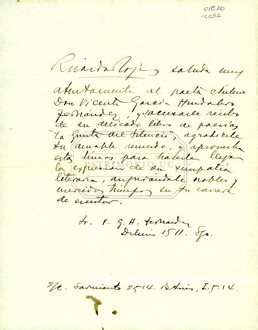 Ricardo Rojas saluda muy
atentamente al poeta chileno
Don Vicente García Huidobro
Fernández, y acúsale recibo
de su delicado libro de poesías
La gruta del Silencio, agradécele
su amable recuerdo, y aprovecha
esta líneas para hacerle llegar
la expresión de su simpatía
literaria, augurándole nobles y
merecidos triunfos en su carrera
de escritor.
Sr. V. G. H. Fernández
S/c. Sarmiento 2514. Bs Aires, I.514.